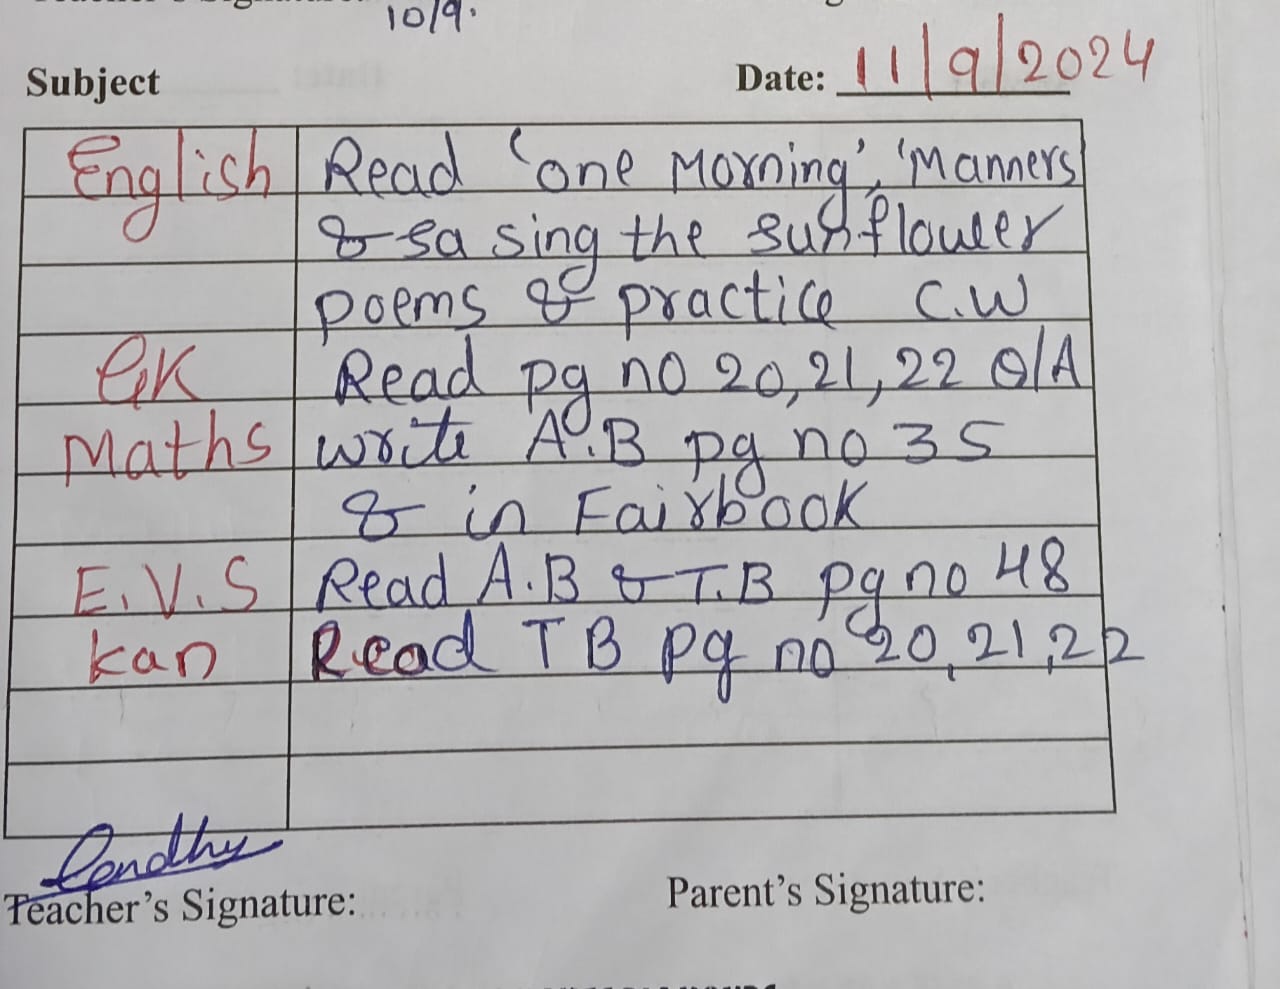 10/9.
Subject Date: 11/9/2024
English Read 'one Morning', 'Manners
& sa sing the sunflower
poems & practice C.W
GK Read pg no 20,21,22 Q/A
Maths write A.B pg no 35
& in Fairbook
E.V.S Read A.B & T.B pg no 48
kan Read T B pg no 20,21,22
Teacher's Signature: Parent's Signature: